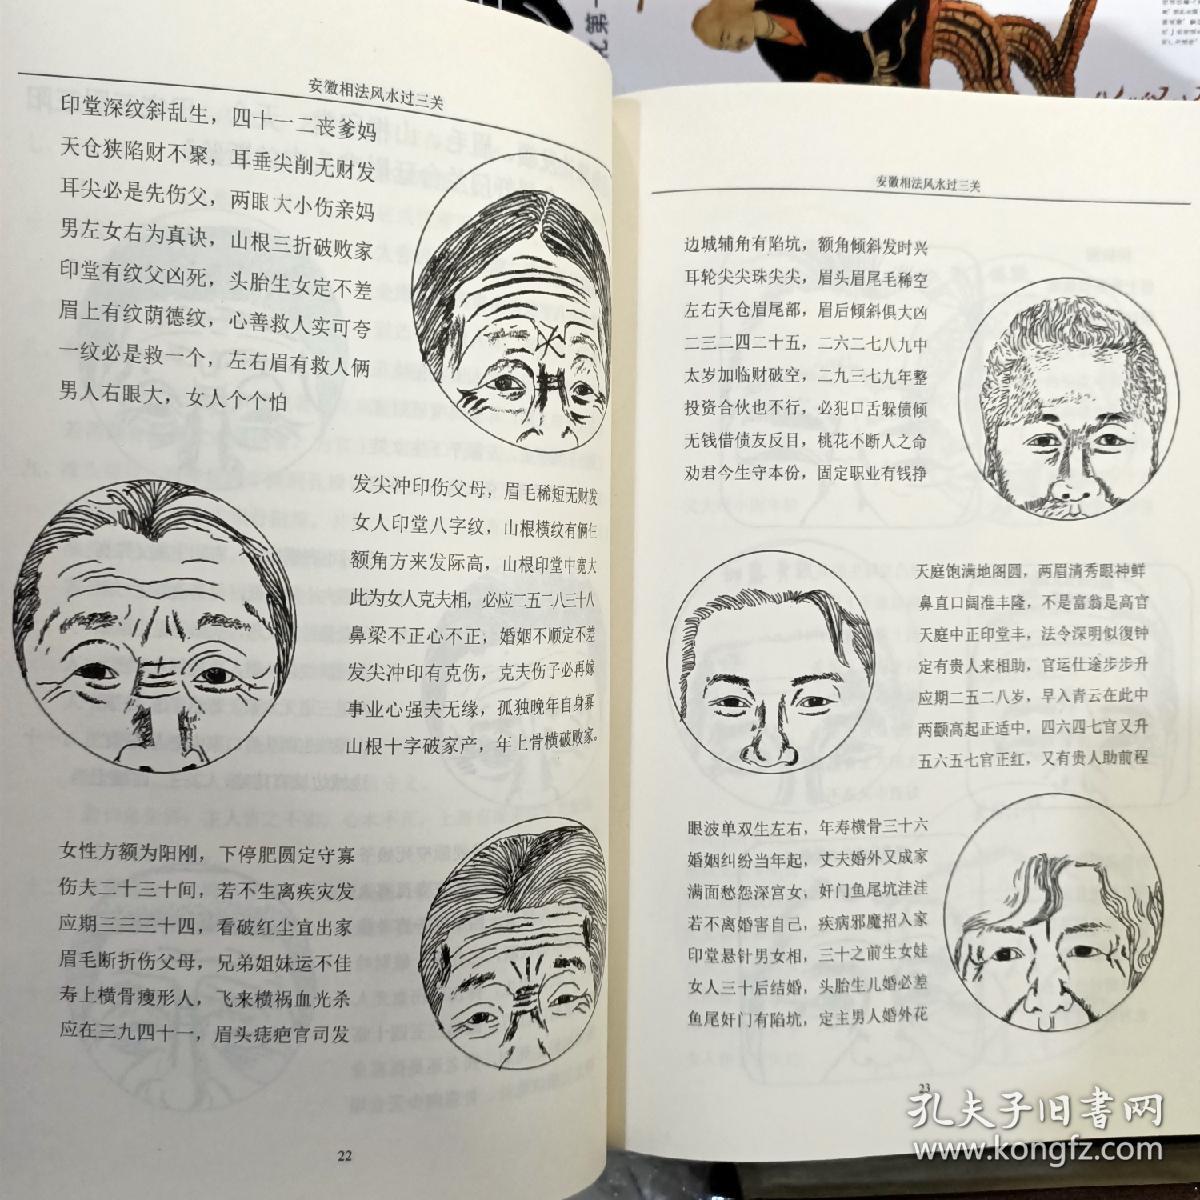 安徽相法风水过三关
印堂深纹斜乱生，四十一二丧爹妈
天仓狭陷财不聚，耳垂尖削无财发
耳尖必是先伤父，两眼大小伤亲妈
男左女右为真诀，山根三折破败家
印堂有纹父凶死，头胎生女定不差
眉上有纹荫德纹，心善救人实可夸
一纹必是救一个，左右眉有救人俩
男人右眼大，女人个个怕
发尖冲印伤父母，眉毛稀短无财发
女人印堂八字纹，山根横纹有俩生
额角方来发际高，山根印堂中宽大
此为女人克夫相，必应二五二八三十八
鼻梁不正心不正，婚姻不顺定不差
发尖冲印有克伤，克夫伤子必再嫁
事业心强夫无缘，孤独晚年自身寡
山根十字破家产，年上骨横破败家。
女性方额为阳刚，下停肥圆定守寡
伤夫二十三十间，若不生离疾灾发
应期三三三十四，看破红尘宜出家
眉毛断折伤父母，兄弟姐妹运不佳
寿上横骨瘦形人，飞来横祸血光杀
应在三九四十一，眉头痣疤官司发
22
安徽相法风水过三关
边城辅角有陷坑，额角倾斜发时兴
耳轮尖尖珠尖尖，眉头眉尾毛稀空
左右天仓眉尾部，眉后倾斜俱大凶
二三二四二十五，二六二七八九中
太岁加临财破空，二九三七九年整
投资合伙也不行，必犯口舌躲债倾
无钱借债友反目，桃花不断人之命
劝君今生守本份，固定职业有钱挣
天庭饱满地阁圆，两眉清秀眼神鲜
鼻直口阔准丰隆，不是富翁是高官
天庭中正印堂丰，法令深明似復钟
定有贵人来相助，官运仕途步步升
应期二五二八岁，早入青云在此中
两颧高起正适中，四六四七官又升
五六五七官正红，又有贵人助前程
眼波单双生左右，年寿横骨三十六
婚姻纠纷当年起，丈夫婚外又成家
满面愁怨深宫女，奸门鱼尾坑洼洼
若不离婚害自己，疾病邪魔招入家
印堂悬针男女相，三十之前生女娃
女人三十后结婚，头胎生儿婚必差
鱼尾奸门有陷坑，定主男人婚外花
23
孔夫子旧书网
www.kongfz.com